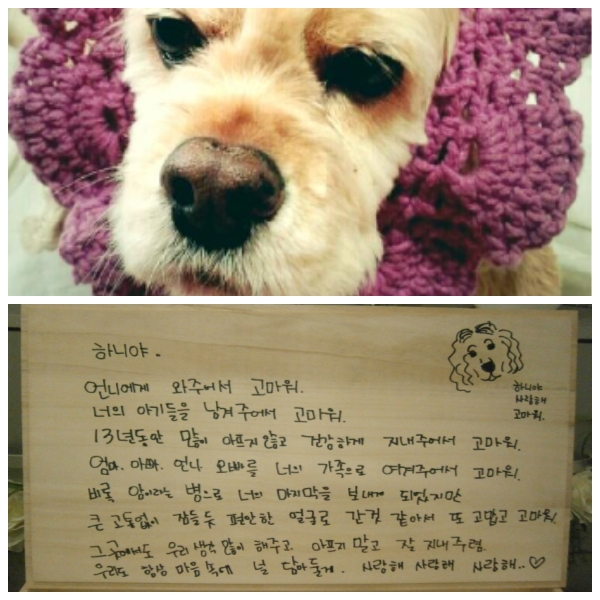 하니야.
언니에게 와주어서 고마워.
너의 아기들을 남겨주어서 고마워.
13년동안 많이 아프지않고 건강하게 지내주어서 고마워.
엄마. 아빠. 언니 오빠를 너의 가족으로 여겨주어서 고마워.
비록 암이라는 병으로 너의 마지막을 보내게 되었지만
큰 고통없이 잠들듯 편안한 얼굴로 간것 같아서 또 고맙고 고마워.
그곳에서도 우리생각 많이 해주고 아프지 말고 잘 지내주렴.
우리도 항상 마음속에 널 담아둘게. 사랑해 사랑해 사랑해..♡
하니야
사랑해
고마워.